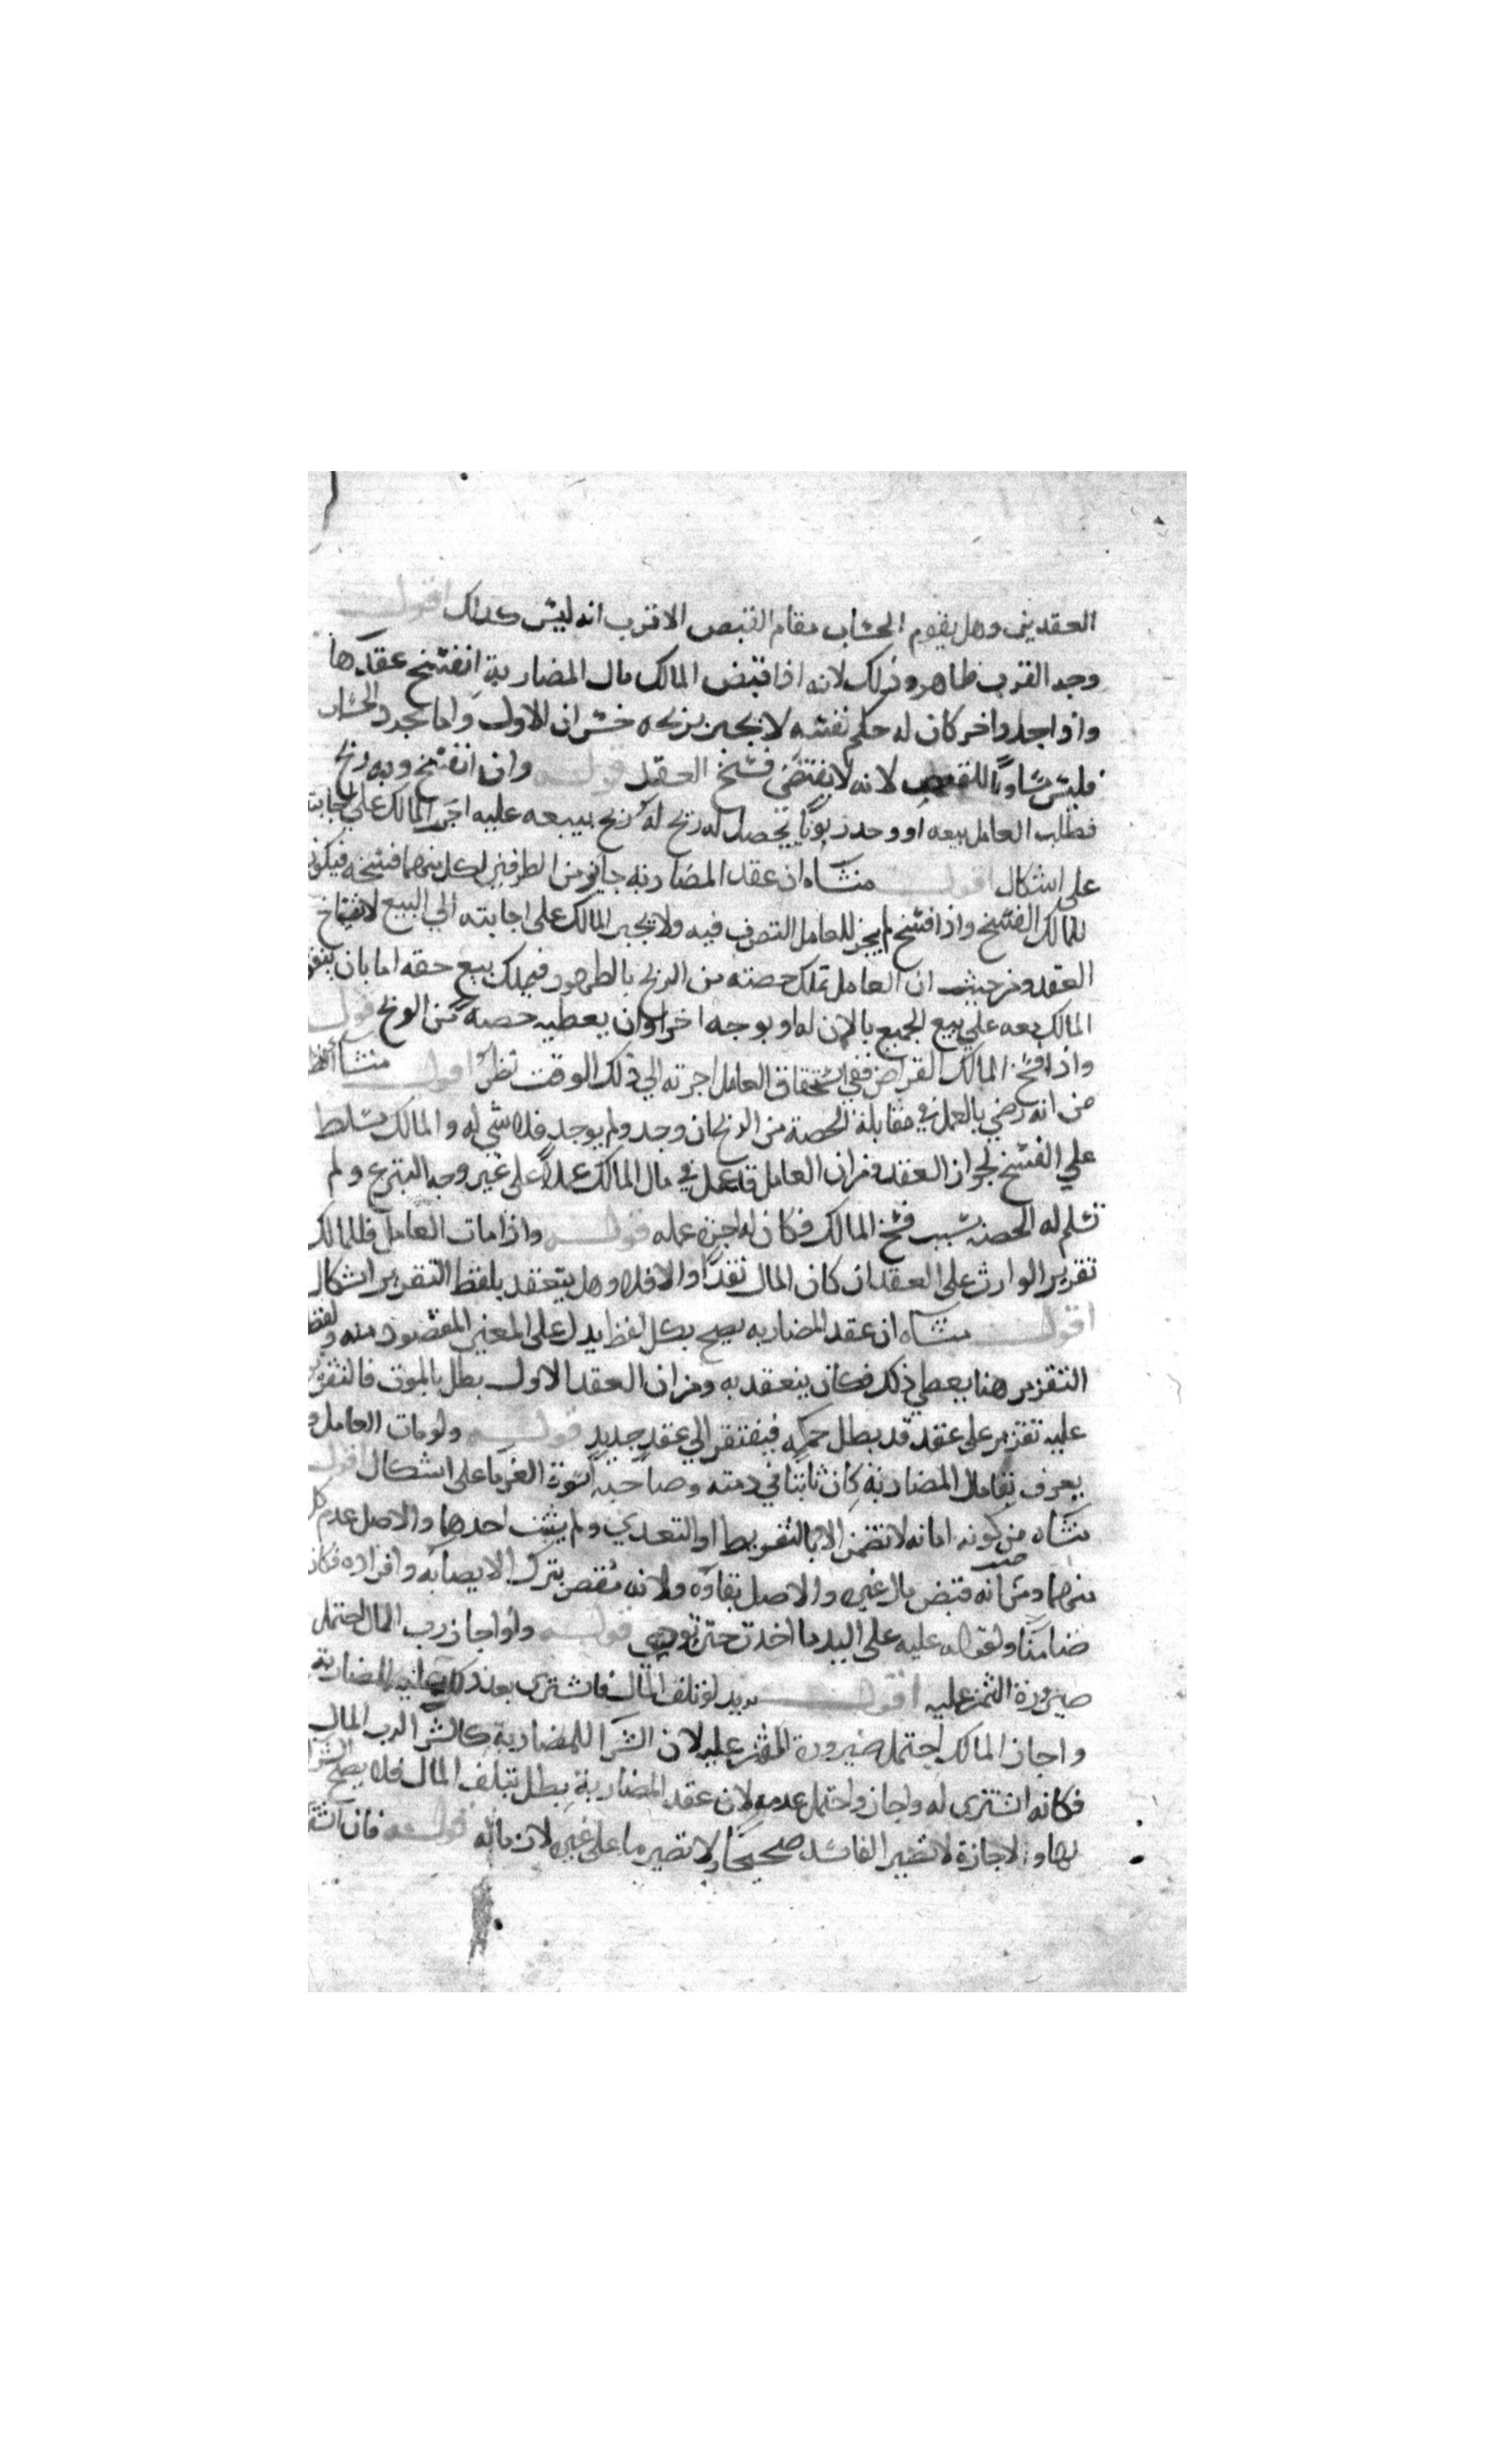 العقدين وهل يقوم الحساب مقام القبض الاقرب انه ليس كذلك اقول
وجه القرب ظاهر وذلك لانه اذا قبض المالك مال المضاربة انفسخ عقدها
واذا جدد اخر كان له حكم نفسه لا يجبر بربحه خسران الاول واما مجرد الحساب
فليس مساويا للقبض لانه لا يقتضي فسخ العقد قوله وان انفسخ وبه ربح
فطلب العامل بيعه او وجد زبونا يحصل له ربح ببيعه عليه اجبر المالك على اجابته
على اشكال اقول منشاه ان عقد المضاربه جايز من الطرفين لكل منهما فسخه فيكون
للمالك الفسخ واذا فسخ لم يجز للعامل التصرف فيه ولا يجبر المالك على اجابته الي البيع لانفساخ
العقد ومن حيث ان العامل يملك حصته من الربح بالظهور فيملك بيع حقه اما بان يتفق
المالك معه علي بيع الجميع بالاذن له او بوجه اخر او ان يعطيه حصة من الربح قوله
واذا فسخ المالك القراض ففي استحقاق العامل اجرته الي ذلك الوقت نظر اقول منشا النظر
من انه رضي بالعمل في مقابلة الحصة من الربح ان وجد ولم يوجد فلا شي له والمالك مسلط
علي الفسخ لجواز العقد ومن ان العامل قد عمل في مال المالك عملا على غير وجه التبرع ولم
تسلم له الحصة بسبب فسخ المالك فكان له اجرة عمله قوله واذا مات العامل فللمالك
تقرير الوارث على العقد ان كان المال نقدا والا فلا وهل ينعقد بلفظ التقرير اشكال
اقول منشاه ان عقد المضاربه يصح بكل لفظ يدل على المعني المقصود منه ولفظ
التقرير هنا يعطي ذلك فكان ينعقد به ومن ان العقد الاول بطل بالموت فالتقرير
عليه تقرير على عقد قد بطل حكمه فيفتقر الي عقد جديد قوله ولو مات العامل ولم
يعرف بقا مال المضاربة كان ثابتا في ذمته وصاحبه اسوة الغرما على اشكال اقول
منشاه من كونه امانه لا تضمن الا بالتفريط او التعدي ولم يثبت احدهما والاصل عدم كل
منهما ومن انه قبض مال غيره والاصل بقاوه ولانه مقصر بترك الايصا به وافراده فكان
ضامنا ولقوله عليه على اليد ما اخذت حتى تودي قوله ولو اجاز رب المال احتمل
صيرورة الثمن عليه اقول يريد لو تلف المال فاشترى بعد ذلك للمضاربة
واجاز المالك احتمل صيرورة الثمن عليه لان الشرا للمضاربة كالشرا لرب المال
فكانه اشترى له واجاز واحتمل عدمه لان عقد المضاربة بطل بتلف المال فلا يصح الشرا
بها والاجازة لا تصير الفاسد صحيحا ولا تصير ما على غيره لازما له قوله فان